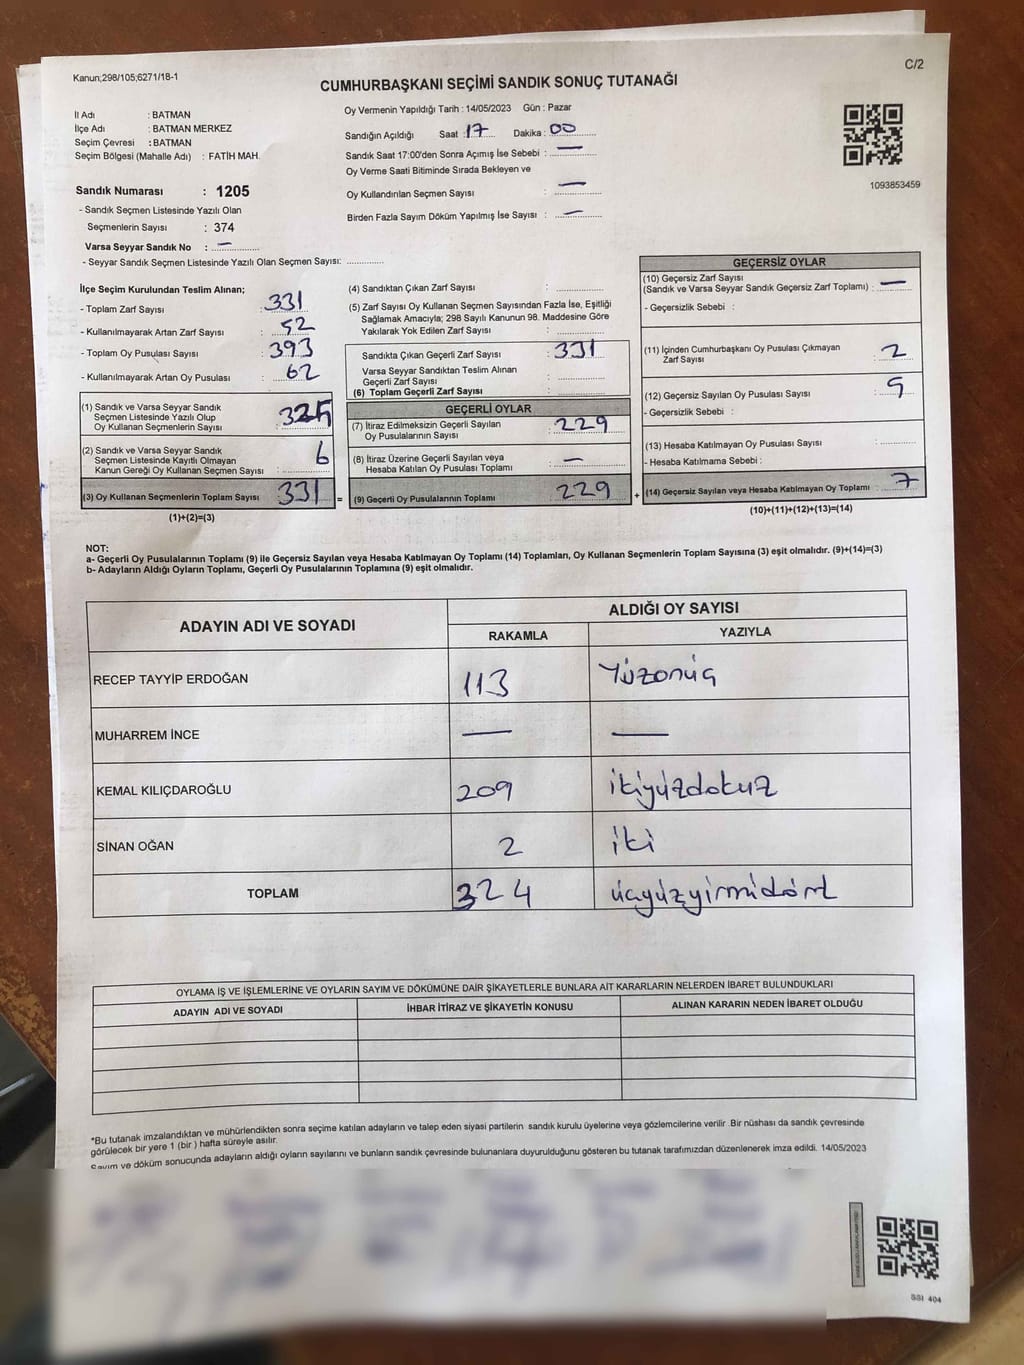 Kanun;298/105;6271/18-1
C/2
CUMHURBAŞKANI SEÇİMİ SANDIK SONUÇ TUTANAĞI
İl Adı : BATMAN
İlçe Adı : BATMAN MERKEZ
Seçim Çevresi : BATMAN
Seçim Bölgesi (Mahalle Adı) : FATİH MAH.
Sandık Numarası : 1205
- Sandık Seçmen Listesinde Yazılı Olan
Seçmenlerin Sayısı : 374
Varsa Seyyar Sandık No : —
- Seyyar Sandık Seçmen Listesinde Yazılı Olan Seçmen Sayısı: ..............
Oy Vermenin Yapıldığı Tarih : 14/05/2023 Gün : Pazar
Sandığın Açıldığı Saat : 17 Dakika : 00
Sandık Saat 17:00'den Sonra Açımış İse Sebebi : —
Oy Verme Saati Bitiminde Sırada Bekleyen ve
Oy Kullandırılan Seçmen Sayısı : —
Birden Fazla Sayım Döküm Yapılmış İse Sayısı : —
1093853459
İlçe Seçim Kurulundan Teslim Alınan;
- Toplam Zarf Sayısı : 331
- Kullanılmayarak Artan Zarf Sayısı : 52
- Toplam Oy Pusulası Sayısı : 393
- Kullanılmayarak Artan Oy Pusulası : 62
(1) Sandık ve Varsa Seyyar Sandık
Seçmen Listesinde Yazılı Olup
Oy Kullanan Seçmenlerin Sayısı : 325
(2) Sandık ve Varsa Seyyar Sandık
Seçmen Listesinde Kayıtlı Olmayan
Kanun Gereği Oy Kullanan Seçmen Sayısı : 6
(3) Oy Kullanan Seçmenlerin Toplam Sayısı : 331 =
(1)+(2)=(3)
(4) Sandıktan Çıkan Zarf Sayısı : ..............
(5) Zarf Sayısı Oy Kullanan Seçmen Sayısından Fazla İse, Eşitliği
Sağlamak Amacıyla; 298 Sayılı Kanunun 98. Maddesine Göre
Yakılarak Yok Edilen Zarf Sayısı : ..............
Sandıkta Çıkan Geçerli Zarf Sayısı : 331
Varsa Seyyar Sandıktan Teslim Alınan
Geçerli Zarf Sayısı : ..............
(6) Toplam Geçerli Zarf Sayısı : ..............
GEÇERLİ OYLAR
(7) İtiraz Edilmeksizin Geçerli Sayılan
Oy Pusulalarının Sayısı : 229
(8) İtiraz Üzerine Geçerli Sayılan veya
Hesaba Katılan Oy Pusulası Toplamı : —
(9) Geçerli Oy Pusulalarının Toplamı : 229 +
GEÇERSİZ OYLAR
(10) Geçersiz Zarf Sayısı
(Sandık ve Varsa Seyyar Sandık Geçersiz Zarf Toplamı) : —
- Geçersizlik Sebebi :
(11) İçinden Cumhurbaşkanı Oy Pusulası Çıkmayan
Zarf Sayısı : 2
(12) Geçersiz Sayılan Oy Pusulası Sayısı : 5
- Geçersizlik Sebebi :
(13) Hesaba Katılmayan Oy Pusulası Sayısı : ..............
- Hesaba Katılmama Sebebi :
(14) Geçersiz Sayılan veya Hesaba Katılmayan Oy Toplamı : 7
(10)+(11)+(12)+(13)=(14)
NOT:
a- Geçerli Oy Pusulalarının Toplamı (9) ile Geçersiz Sayılan veya Hesaba Katılmayan Oy Toplamı (14) Toplamları, Oy Kullanan Seçmenlerin Toplam Sayısına (3) eşit olmalıdır. (9)+(14)=(3)
b- Adayların Aldığı Oyların Toplamı, Geçerli Oy Pusulalarının Toplamına (9) eşit olmalıdır.
ADAYIN ADI VE SOYADI
ALDIĞI OY SAYISI
RAKAMLA YAZIYLA
RECEP TAYYİP ERDOĞAN 113 Yüzonüç
MUHARREM İNCE — —
KEMAL KILIÇDAROĞLU 209 ikiyüzdokuz
SİNAN OĞAN 2 iki
TOPLAM 324 üçyüzyirmidört
OYLAMA İŞ VE İŞLEMLERİNE VE OYLARIN SAYIM VE DÖKÜMÜNE DAİR ŞİKAYETLERLE BUNLARA AİT KARARLARIN NELERDEN İBARET BULUNDUKLARI
ADAYIN ADI VE SOYADI İHBAR İTİRAZ VE ŞİKAYETİN KONUSU ALINAN KARARIN NEDEN İBARET OLDUĞU
*Bu tutanak imzalandıktan ve mühürlendikten sonra seçime katılan adayların ve talep eden siyasi partilerin sandık kurulu üyelerine veya gözlemcilerine verilir. Bir nüshası da sandık çevresinde
görülecek bir yere 1 (bir ) hafta süreyle asılır.
Sayım ve döküm sonucunda adayların aldığı oyların sayılarını ve bunların sandık çevresinde bulunanlara duyurulduğunu gösteren bu tutanak tarafımızdan düzenlenerek imza edildi. 14/05/2023
SSI 404